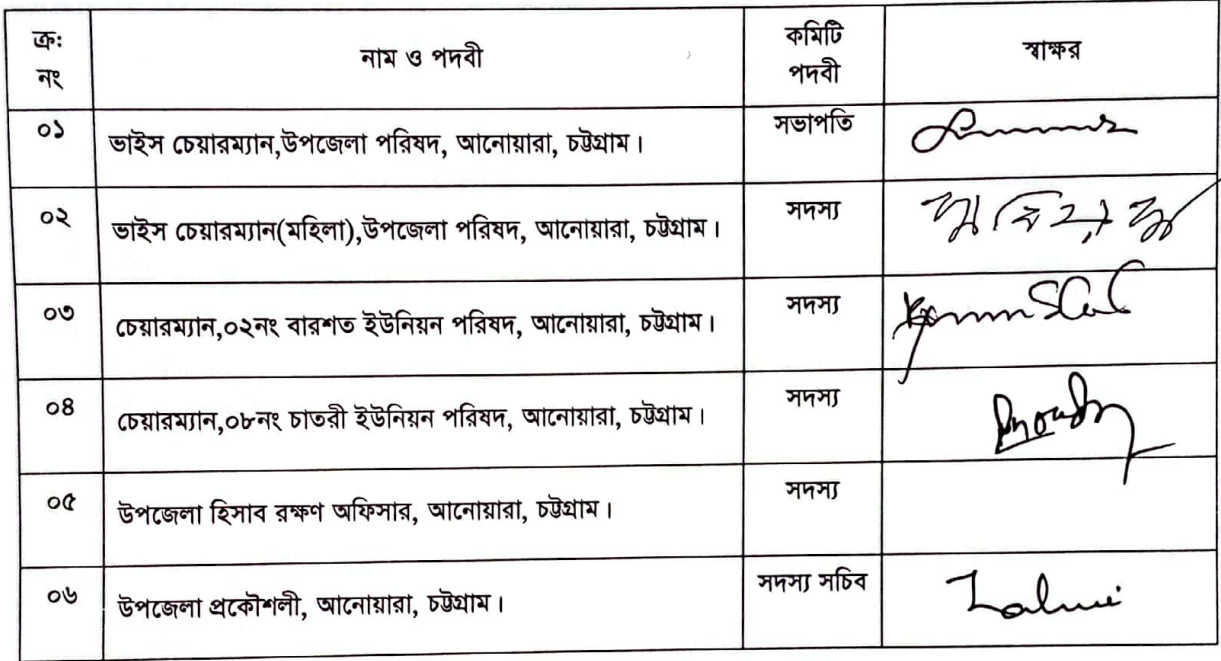 ক্র: নং	নাম ও পদবী	কমিটি পদবী	স্বাক্ষর
০১	ভাইস চেয়ারম্যান,উপজেলা পরিষদ, আনোয়ারা, চট্টগ্রাম।	সভাপতি
০২	ভাইস চেয়ারম্যান(মহিলা),উপজেলা পরিষদ, আনোয়ারা, চট্টগ্রাম।	সদস্য
০৩	চেয়ারম্যান,০২নং বারশত ইউনিয়ন পরিষদ, আনোয়ারা, চট্টগ্রাম।	সদস্য
০৪	চেয়ারম্যান,০৮নং চাতরী ইউনিয়ন পরিষদ, আনোয়ারা, চট্টগ্রাম।	সদস্য
০৫	উপজেলা হিসাব রক্ষণ অফিসার, আনোয়ারা, চট্টগ্রাম।	সদস্য
০৬	উপজেলা প্রকৌশলী, আনোয়ারা, চট্টগ্রাম।	সদস্য সচিব